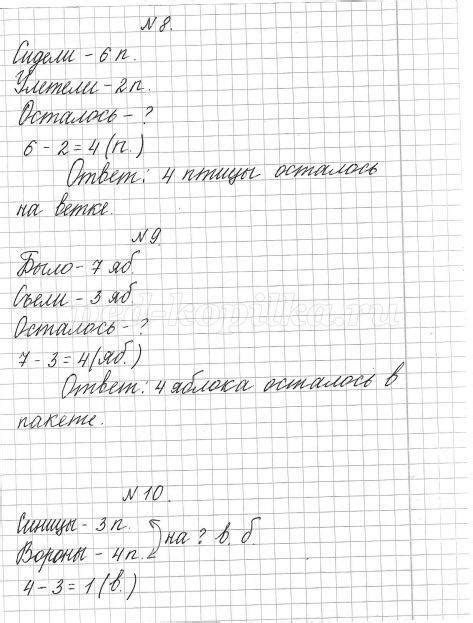 №8.
Сидели - 6 п.
Улетели - 2 п.
Осталось - ?
6 - 2 = 4 (п.)
Ответ: 4 птицы осталось
на ветке.
№9.
Было - 7 яб.
Съели - 3 яб.
Осталось - ?
7 - 3 = 4 (яб.)
Ответ: 4 яблока осталось в
пакете.
№10.
Синицы - 3 п.
Вороны - 4 п.
на ? в. б.
4 - 3 = 1 (в.)